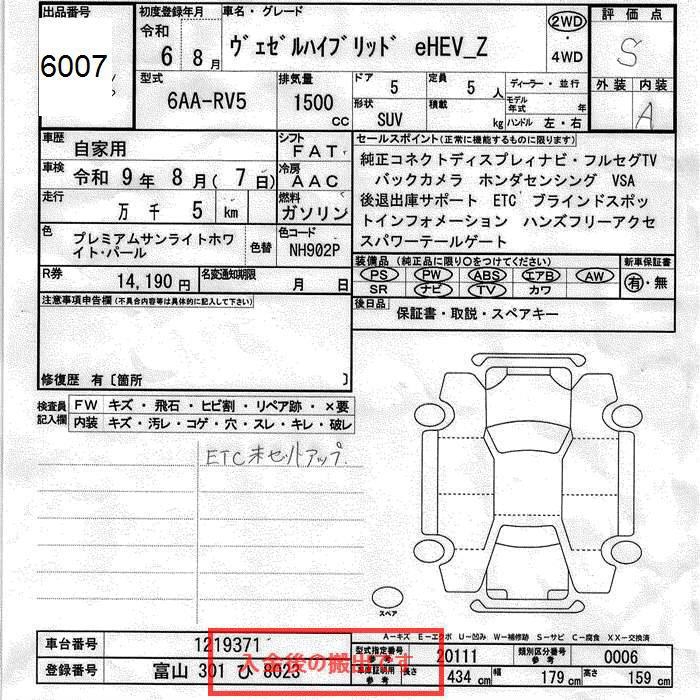 出品番号
6007
初度登録年月
令和
6 8月
車名・グレード
ヴェゼルハイブリッド eHEV_Z
2WD
・
4WD
評価点
S
外装 内装
A
型式
6AA-RV5
排気量
1500
cc
ドア 5
定員 5人
ディーラー・並行
形状
SUV
積載 kg
モデル年式 年
ハンドル 左・右
車歴
自家用
シフト
FAT
車検
令和 9年 8月( 7日)
冷房
AAC
走行
万 千 5 km
燃料
ガソリン
色
プレミアムサンライトホワイト・パール
色替
色コード
NH902P
R券
14,190円
名変通知期限
月 日
セールスポイント(正常に機能するものに限ります)
純正コネクトディスプレィナビ・フルセグTV
バックカメラ ホンダセンシング VSA
後退出庫サポート ETC ブラインドスポッ
トインフォメーション ハンズフリーアクセ
スパワーテールゲート
装備品(純正品に限り○をつけてください)
PS PW ABS エアB AW
SR ナビ TV カワ
新車保証書
有・無
後日品
保証書・取説・スペアキー
注意事項申告欄(不具合内容等は具体的に記入して下さい)
修復歴 有〔箇所 〕
検査員
記入欄
FW キズ・飛石・ヒビ割・リペア跡・×要
内装 キズ・汚レ・コゲ・穴・スレ・キレ・破レ
ETC未セットアップ.
スペア
A-キズ E-エクボ U-凹み W-補修跡 S-サビ C-腐食 XX-交換済
車台番号
1219371
登録番号
富山 301 ひ 8023
入金後の搬出です
型式指定番号
参考
20111
類別区分番号
参考
0006
車庫証明用
参考
長さ 434 cm
幅 179 cm
高さ 159 cm